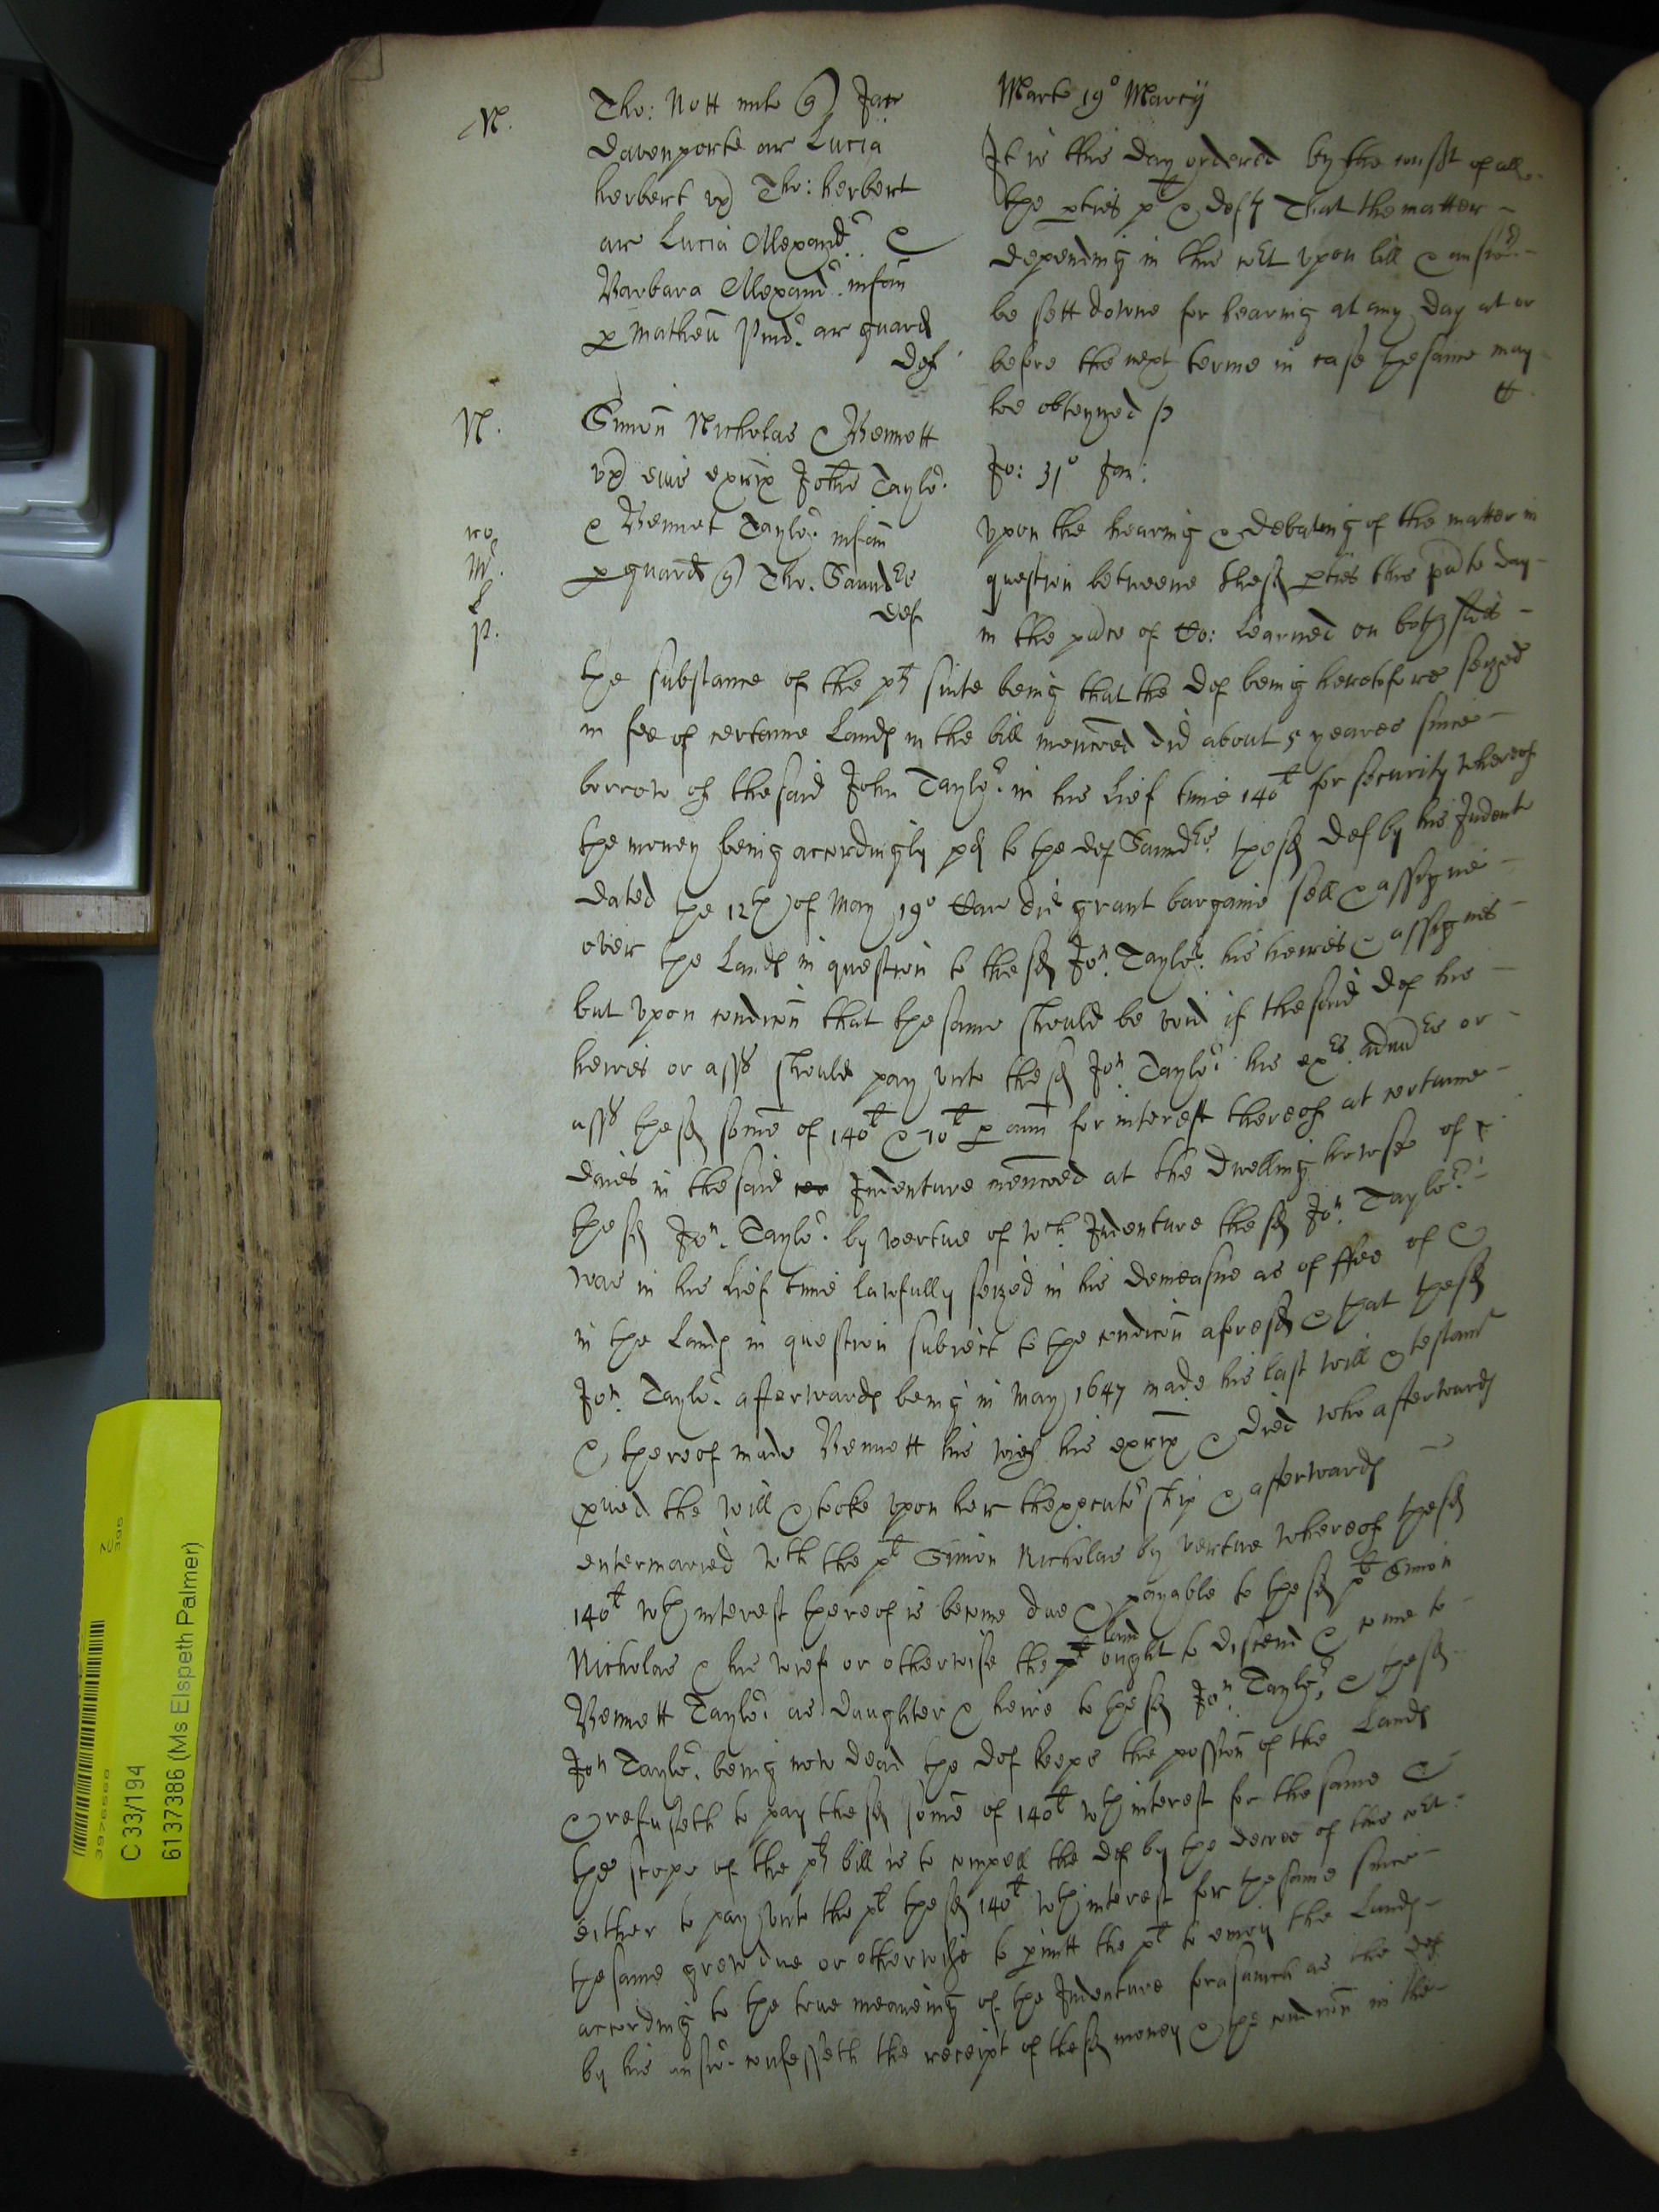 N.
Tho: Nott mil
Davenporte ar Lucia
herbert Tho: herbert
ar Lucia Allexand &
Barbara Allexand infan
p Matheu ar guard
Def
Marte 19° Marcij
It is this day ordered by the of all
the pties plt & deftes That the matter
depending in this Cort upon bill & answer
be sett downe for hearing at any day at or
before the next terme in case the same may
bee obteyned
N.
ro
Mr.
L
p.
Simon Nicholas & Bennett
ux eius exrix Johis Taylor
& Bennet Taylor infan
p guard Tho. Saunders
Def
Jo: 31° Jan:
Upon the hearing & debating of the matter in
question betweene these pties this day
in the of Co: Learned on both sides
the substance of the plts suite being that the Def being heretofore seized
in fee of certeine Lands in the bill menconed did about 5 yeares since
borrow of the said John Taylor in his lief time 140l for security whereof
the money being accordingly pd to the def Saunders the sd Def by his Indent
dated the 12th of May 19° Car did grant bargaine sell & assigne
over the Lands in question to the sd Jon. Taylor his heires & assignes
but upon condicon that the same should be void if the said Def his
heires or asss should pay unto the sd Jon. Taylor his exrs admrs or
asss the sd some of 140l & 10l p ann for interest thereof at certaine
daies in the said Indenture menconed at the dwelling howse of
the sd Jon. Taylor by vertue of wch Indenture the sd Jon. Taylor
was in his lief time lawfully seized in his demeasne as of ffee of &
in the Lands in question subiect to the condicon aforesd & that the sd
Jon. Taylor afterwards being in May 1647 made his last will & testamt
& thereof made Bennett his wief his exrix & died who afterwards
pved the will & tooke upon her thexecutorship & afterwards
entermarried wth the plt Simon Nicholas by vertue whereof the sd
140l wth interest thereof is become due & payable to the sd plt Simon
Nicholas & his wief or otherwise the land ought to discend & come to
Bennett Taylor as daughter & heire to the sd Jon. Taylor & the sd
Jon Taylor being now dead the Def keepes the possion of the Lands
& refuseth to pay the sd some of 140l wth interest for the same &
the scope of the plts bill is to compell the Def by the decree of this Cort
either to pay unto the plt the sd 140l wth interest for the same since
the same grew due or otherwise to pmitt the plt to enioy the Lands
according to the true meaneing of the Indenture forasmuch as the Def
by his answr confesseth the receipt of the sd money & the condicon in the
C 33/194
6137386 (Ms Elspeth Palmer)